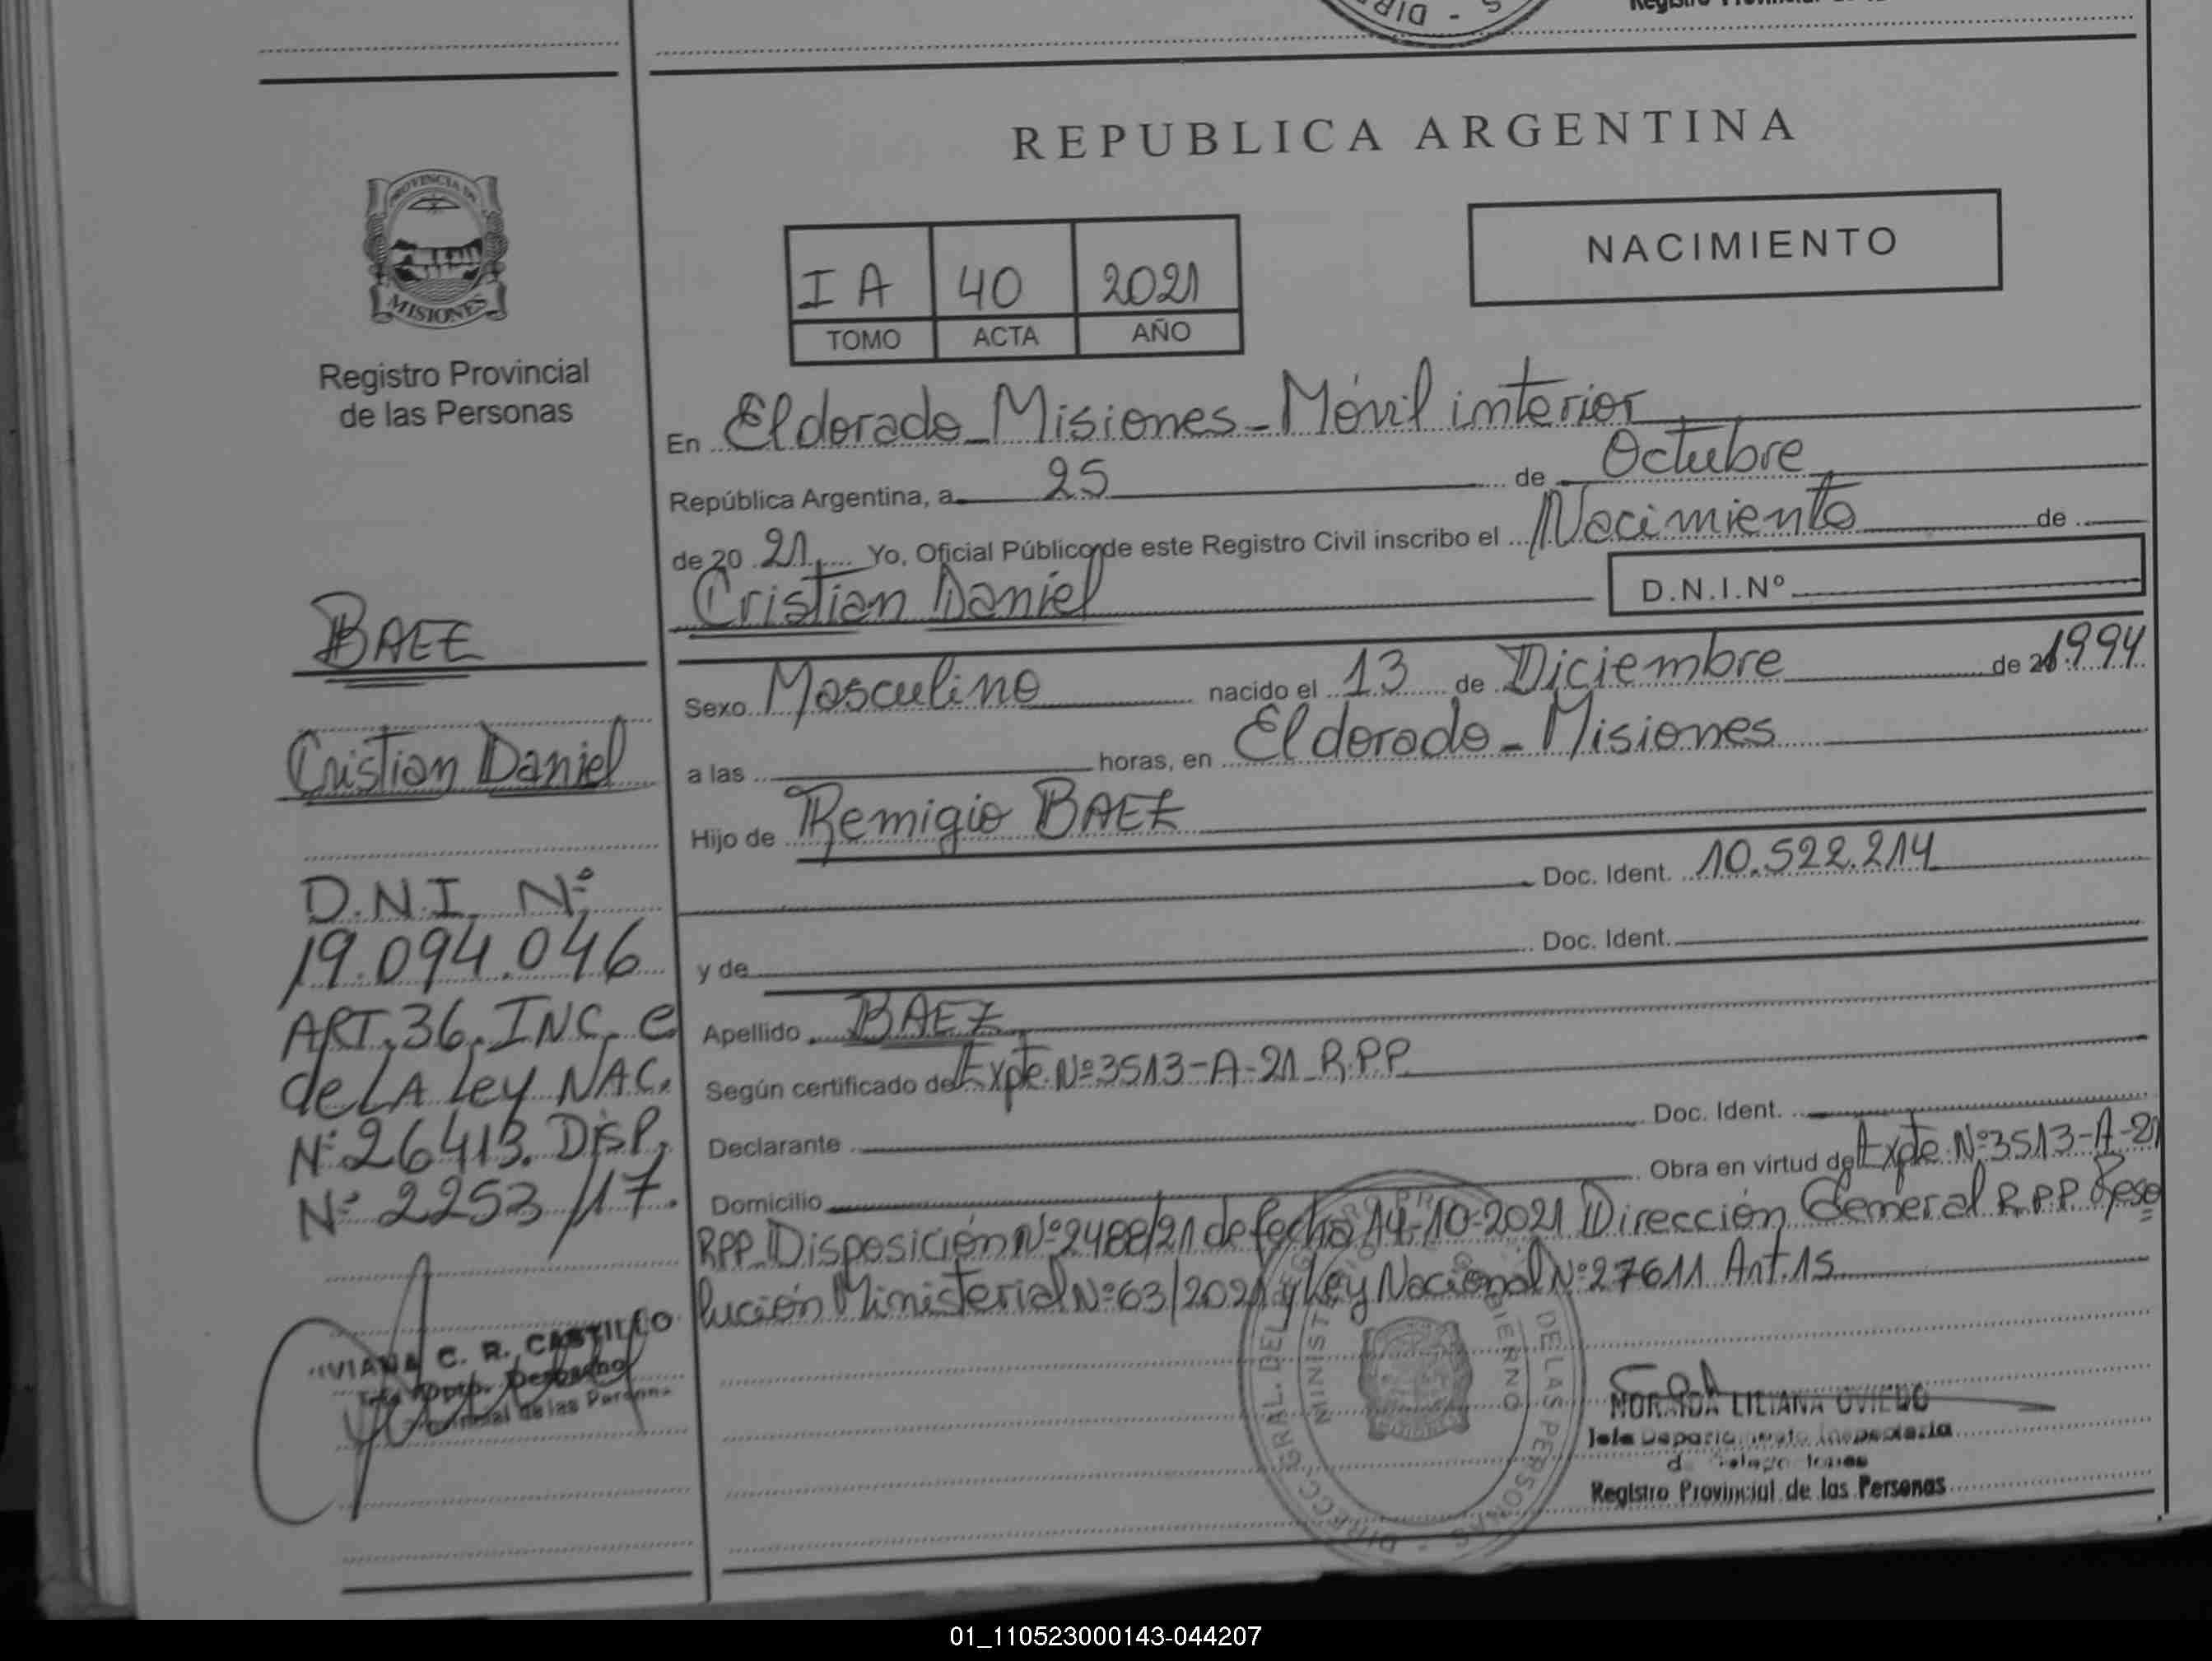 DIR - S
REPUBLICA ARGENTINA
PROVINCIA DE
MISIONES
Registro Provincial
de las Personas
NACIMIENTO
I A 40 2021
TOMO ACTA AÑO
En Eldorado_Misiones_Móvil interior
República Argentina, a 25 de Octubre
de 20 21 Yo, Oficial Público de este Registro Civil inscribo el Nacimiento de
Cristian Daniel D.N.I.Nº
Sexo Masculino nacido el 13 de Diciembre de 1994
a las horas, en Eldorado_Misiones
Hijo de Remigio BAEZ
Doc. Ident. 10.522.214
y de Doc. Ident.
Apellido BAEZ
Según certificado de Expte.Nº3513-A-21 R.P.P.
Declarante Doc. Ident.
Domicilio Obra en virtud de Expte.Nº3513-A-21
RPP Disposición Nº2488/21 de fecha 14-10-2021 Dirección General R.P.P. Reso
lución Ministerial Nº63/2021 y Ley Nacional Nº27611 Art.15
BAEZ
Cristian Daniel
D.N.I. Nº
19.094.046
ART.36.INC.e
de LA Ley NAC.
Nº26413. DISP.
Nº 2253/17.
C. R. CASTILLO
Provincial de las Personas
DIRECC. GRAL. DEL
MINIST
GOBIERNO
DE LAS PERSONAS
LILIANA OVIEDO
Registro Provincial de las Personas
01_110523000143-044207